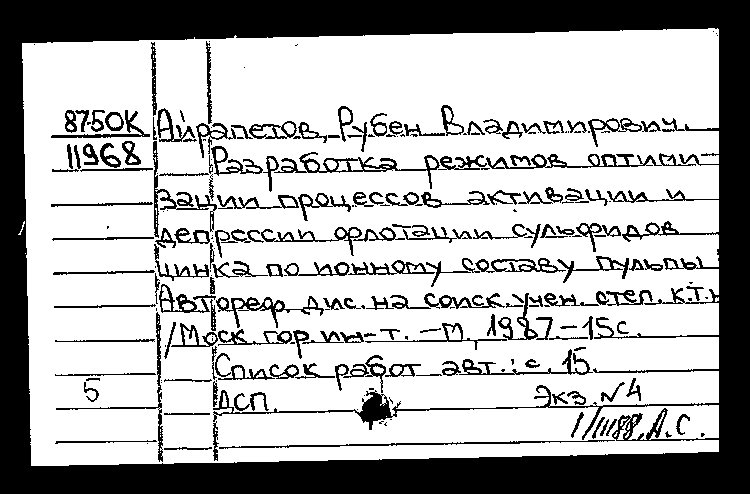 8750К Айрапетов, Рубен Владимирович.
11968 Разработка режимов оптими-
зации процессов активации и
депрессии флотации сульфидов
цинка по ионному составу пульпы
Автореф. дис. на соиск. учен. степ. к.т.н
/Моск. гор. ин-т. -М, 1987-15с.
Список работ авт.: с. 15.
5 ДСП. Экз. N4
А.С.